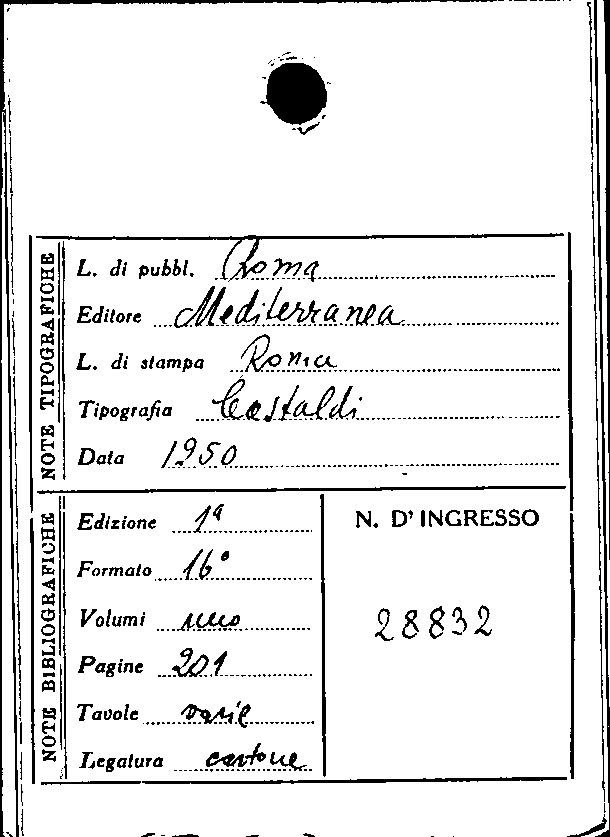 NOTE TIPOGRAFICHE
L. di pubbl. Roma
Editore Mediterranea
L. di stampa Roma
Tipografia Castaldi
Data 1950
NOTE BIBLIOGRAFICHE
Edizione 1ª
Formato 16°
Volumi uno
Pagine 201
Tavole varie
Legatura cartone
N. D'INGRESSO
28832